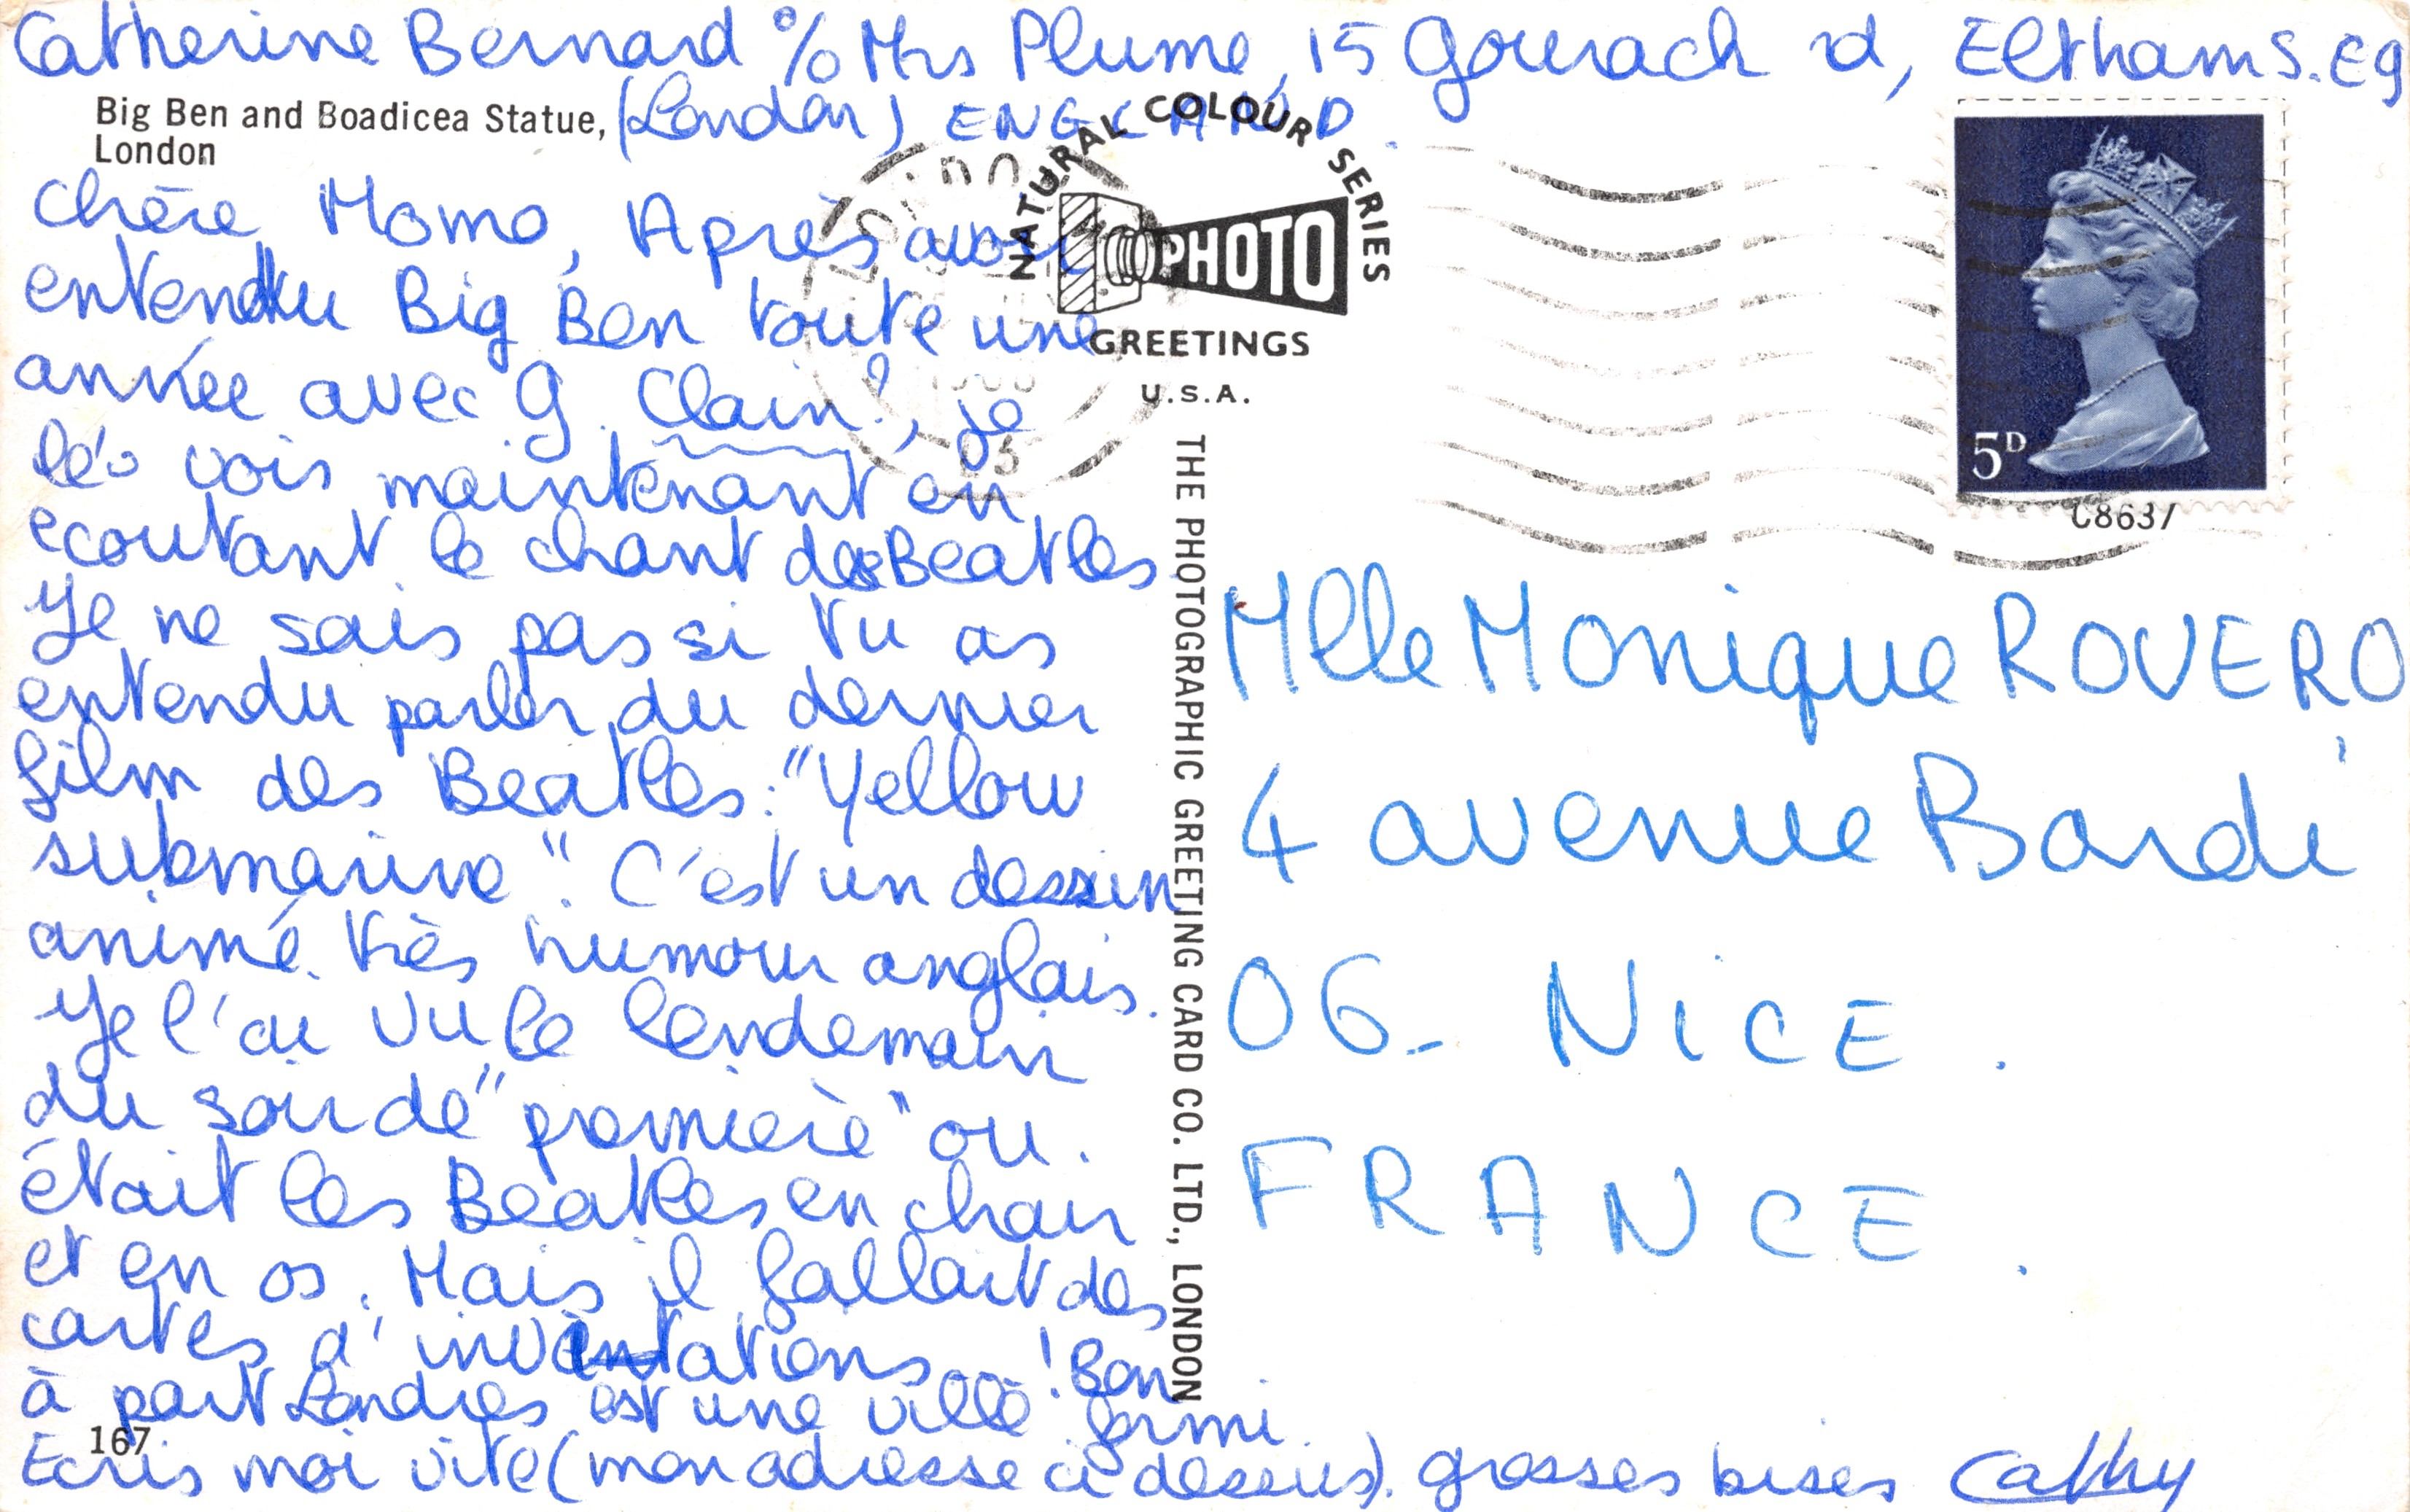 Catherine Bernard % Mrs Plume, 15 Gourach rd, Eltham S.E9
(London) ENGLAND.
Big Ben and Boadicea Statue,
London
NATURAL COLOUR SERIES
PHOTO
GREETINGS
U.S.A.
5D
C8637
Chère Momo, Après avoir
entendu Big Ben toute une
année avec G. Clain!, je
le vois maintenant en
ecoutant le chant des Beatles
Je ne sais pas si tu as
entendu parler du dernier
film des Beatles: "Yellow
submarine". C'est un dessin
animé très humour anglais.
Je l'ai vu le lendemain
du soir de "première" ou
était les Beatles en chair
et en os. Mais il fallait des
cartes d'invitations...! Bon
à part Londres est une ville formi.
Ecris moi vite (mon adresse ci dessus). grosses bises Cathy
167
THE PHOTOGRAPHIC GREETING CARD CO. LTD., LONDON
Mlle Monique ROVERO
4 avenue Bardi
06_ NICE.
FRANCE.